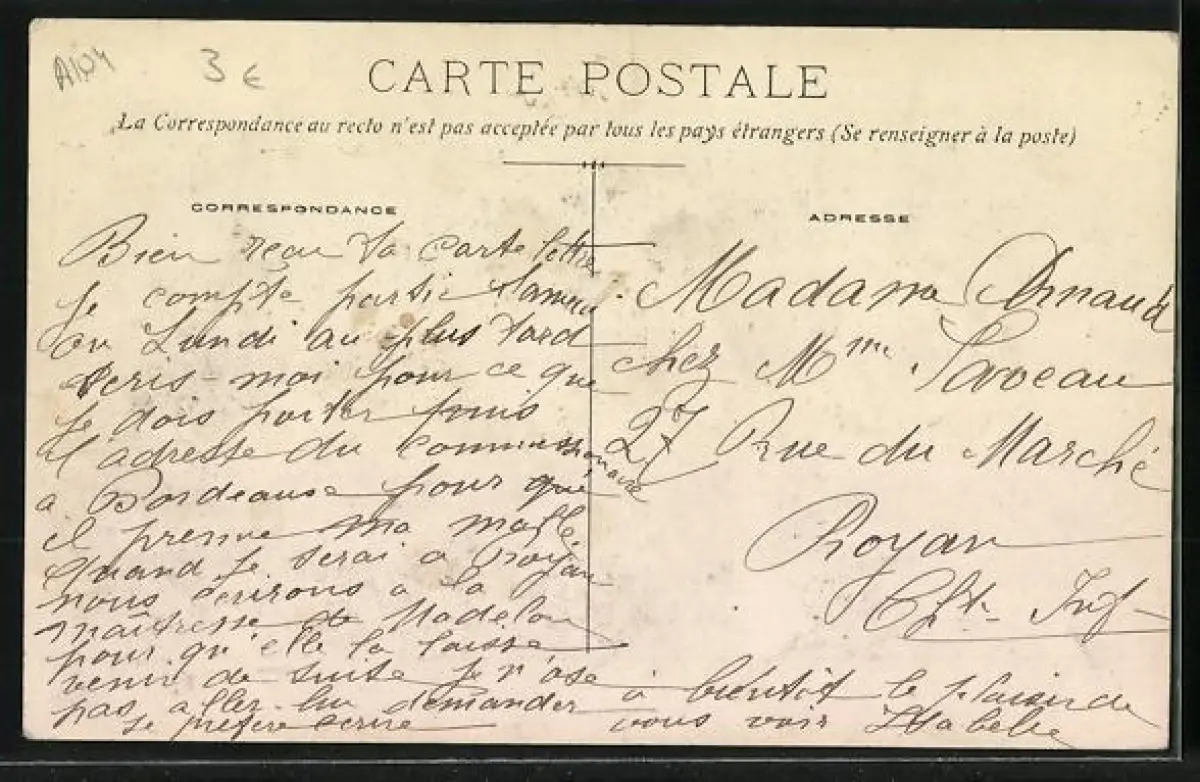 A104 3 €
CARTE POSTALE
La Correspondance au recto n'est pas acceptée par tous les pays étrangers (Se renseigner à la poste)
CORRESPONDANCE
Bien reçu ta carte lettre
je compte partir samedi
ou Lundi au plus tard
écris-moi pour ce que
je dois porter puis
l'adresse du commissionnaire
a Bordeause pour que
il prenne ma malle.
Quand je serai a Royan
nous écrirons a la
maîtresse de Madelon
pour qu'elle la laisse
venir de suite je n'ose
pas aller lui demander
je préfère écrire
ADRESSE
Madame Arnaud
chez Mme Saveau
27 Rue du Marché
Royan
Chte Inf
à bientôt le plaisir de
vous voir Isabelle